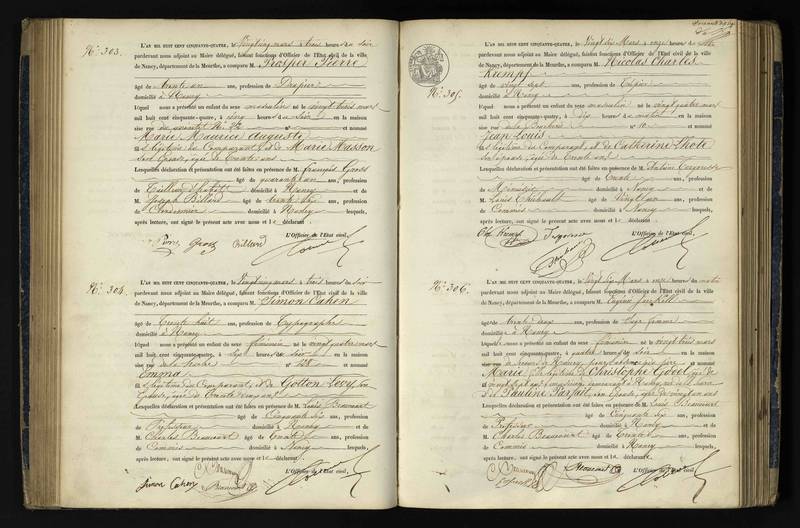 N.° 303.
L'AN MIL HUIT CENT CINQUANTE-QUATRE, le Vingt cinq mars à trois heures du soir
pardevant nous adjoint au Maire délégué, faisant fonctions d'Officier de l'Etat civil de la ville
de Nancy, département de la Meurthe, a comparu M. Prosper Pierre
âgé de trente un ans, profession de Drapier
domicilié à Nancy
lequel nous a présenté un enfant du sexe masculin né le vingt trois mars
mil huit cent cinquante-quatre, à cinq heures du soir en la maison
sise rue et nommé
Marie Maurice Auguste
fils légitime du Comparant, et de Marie Masson
son Epouse, âgée de trente ans
Lesquelles déclaration et présentation ont été faites en présence de M. François Gross
âgé de quarante un ans, profession
de domicilié à Nancy et de
M. Joseph Billard âgé de trente six ans, profession
de Cordonnier domicilié à Nancy lesquels,
après lecture, ont signé le présent acte avec nous et le déclarant.
L'Officier de l'Etat civil,
Pierre Gross Billard
N.° 304.
L'AN MIL HUIT CENT CINQUANTE-QUATRE, le Vingt cinq mars à trois heures du soir
pardevant nous adjoint au Maire délégué, faisant fonctions d'Officier de l'Etat civil de la ville
de Nancy, département de la Meurthe, a comparu M. Simon Cahen
âgé de trente huit ans, profession de Typographe
domicilié à Nancy
lequel nous a présenté un enfant du sexe féminin né le vingt quatre mars
mil huit cent cinquante-quatre, à sept heures du soir en la maison
sise rue n° 128 et nommé
Emma
fille légitime du Comparant, et de Gotton Levy son
Epouse, âgée de trente cinq ans
Lesquelles déclaration et présentation ont été faites en présence de M. Louis Beaucourt
âgé de Cinquante six ans, profession
de Professeur domicilié à Nancy et de
M. Charles Beaucourt âgé de trente ans, profession
de Commis domicilié à Nancy lesquels,
après lecture, ont signé le présent acte avec nous et le déclarant.
L'Officier de l'Etat civil,
Simon Cahen Beaucourt
N.° 305.
L'AN MIL HUIT CENT CINQUANTE-QUATRE, le Vingt six Mars à onze heures du matin
pardevant nous adjoint au Maire délégué, faisant fonctions d'Officier de l'Etat civil de la ville
de Nancy, département de la Meurthe, a comparu M. Nicolas Charles
Krempf
âgé de vingt sept ans, profession de
domicilié à Nancy
lequel nous a présenté un enfant du sexe masculin né le vingt quatre mars
mil huit cent cinquante-quatre, à dix heures du matin en la maison
sise rue n° 10 et nommé
Jean Louis
fils légitime du Comparant, et de Catherine Thote
son Epouse, âgée de trente ans
Lesquelles déclaration et présentation ont été faites en présence de M. Antoine
âgé de trente ans, profession
de Menuisier domicilié à Nancy et de
M. Louis Thiébault âgé de vingt six ans, profession
de Commis domicilié à Nancy lesquels,
après lecture, ont signé le présent acte avec nous et le déclarant.
L'Officier de l'Etat civil,
Ch Krempf
N.° 306.
L'AN MIL HUIT CENT CINQUANTE-QUATRE, le Vingt six Mars à onze heures du matin
pardevant nous adjoint au Maire délégué, faisant fonctions d'Officier de l'Etat civil de la ville
de Nancy, département de la Meurthe, a comparu M. Eugénie
âgé de trente deux ans, profession de Sage femme
domicilié à Nancy
lequel nous a présenté un enfant du sexe féminin né le vingt trois mars
mil huit cent cinquante-quatre, à quatre heures du soir en la maison
sise rue et nommé
Marie fille légitime de Christophe Gobel âgé de
vingt sept ans
et de Pauline Parfait son Epouse, âgée de vingt un ans
Lesquelles déclaration et présentation ont été faites en présence de M. Louis Beaucourt
âgé de Cinquante six ans, profession
de Professeur domicilié à Nancy et de
M. Charles Beaucourt âgé de trente ans, profession
de Commis domicilié à Nancy lesquels,
après lecture, ont signé le présent acte avec nous et le déclarant.
L'Officier de l'Etat civil,
Beaucourt